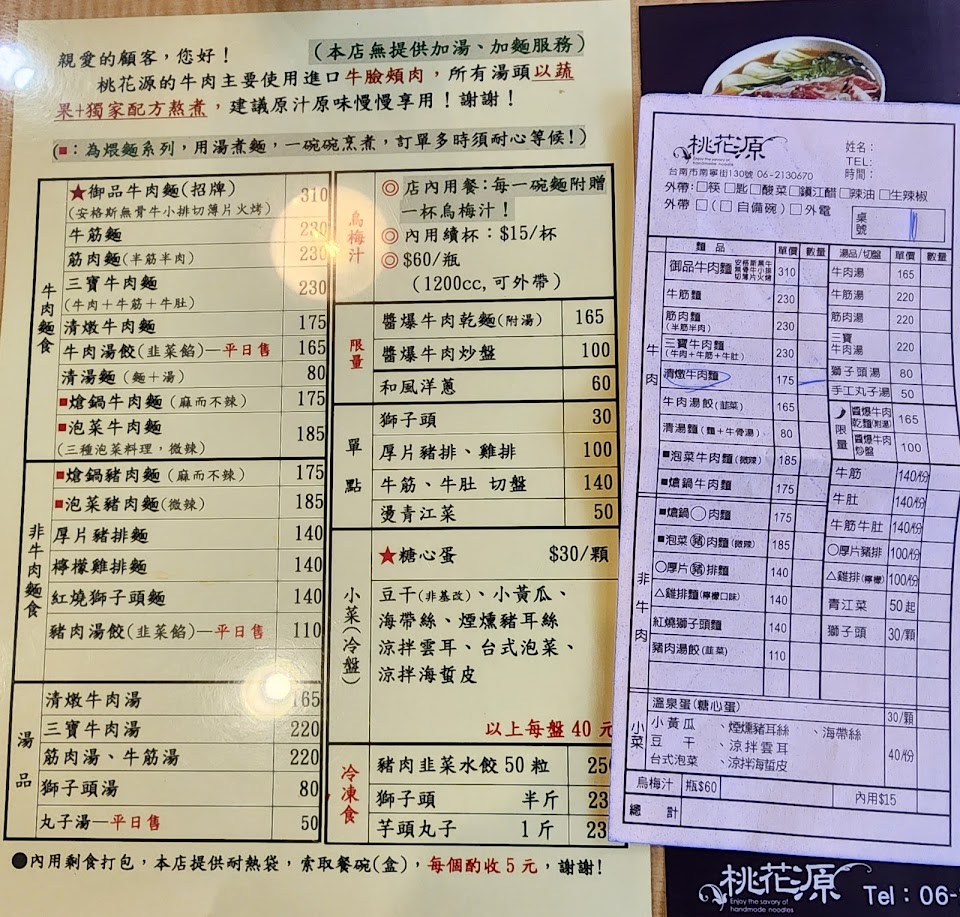 親愛的顧客，您好！
（本店無提供加湯、加麵服務）
桃花源的牛肉主要使用進口牛臉頰肉，所有湯頭以蔬
果+獨家配方熬煮，建議原汁原味慢慢享用！謝謝！
(■：為煨麵系列，用湯煮麵，一碗碗烹煮，訂單多時須耐心等候！)
牛肉麵食
★御品牛肉麵(招牌) 310
(安格斯無骨牛小排切薄片火烤)
牛筋麵 230
筋肉麵(半筋半肉) 230
三寶牛肉麵 230
(牛肉+牛筋+牛肚)
清燉牛肉麵 175
牛肉湯餃(韭菜餡)—平日售 165
清湯麵(麵+湯) 80
■熗鍋牛肉麵(麻而不辣) 175
■泡菜牛肉麵 185
(三種泡菜料理，微辣)
非牛肉麵食
■熗鍋豬肉麵(麻而不辣) 175
■泡菜豬肉麵(微辣) 185
厚片豬排麵 140
檸檬雞排麵 140
紅燒獅子頭麵 140
豬肉湯餃(韭菜餡)—平日售 110
湯品
清燉牛肉湯 165
三寶牛肉湯 220
筋肉湯、牛筋湯 220
獅子頭湯 80
丸子湯—平日售 50
烏梅汁
◎店內用餐：每一碗麵附贈
一杯烏梅汁！
◎內用續杯：$15/杯
◎$60/瓶
(1200cc,可外帶)
限量
醬爆牛肉乾麵(附湯) 165
醬爆牛肉炒盤 100
和風洋蔥 60
單點
獅子頭 30
厚片豬排、雞排 100
牛筋、牛肚 切盤 140
燙青江菜 50
小菜(冷盤)
★糖心蛋 $30/顆
豆干(非基改)、小黃瓜、
海帶絲、煙燻豬耳絲
涼拌雲耳、台式泡菜、
涼拌海蜇皮
以上每盤40元
冷凍食
豬肉韭菜水餃50粒
獅子頭 半斤
芋頭丸子 1斤
●內用剩食打包，本店提供耐熱袋，索取餐碗(盒)，每個酌收5元，謝謝！
桃花源
Enjoy the savory of
handmade noodles
姓名：
TEL：
時間：
台南市南寧街130號 06-2130670
外帶：□筷□匙□酸菜□鎮江醋□辣油□牛辣椒
外帶□(□自備碗)□外電
桌號
麵品 單價 數量
牛肉
御品牛肉麵 安格斯無骨牛小排切薄片火烤 310
牛筋麵 230
筋肉麵 230
(半筋半肉)
三寶牛肉麵 230
(牛肉+牛筋+牛肚)
清燉牛肉麵 175
牛肉湯餃(韭菜) 165
清湯麵(麵+牛骨湯) 80
■泡菜牛肉麵(微辣) 185
■熗鍋牛肉麵 175
非牛肉
■熗鍋○肉麵 175
■泡菜豬肉麵(微辣) 185
○厚片豬排麵 140
△雞排麵(檸檬口味) 140
紅燒獅子頭麵 140
豬肉湯餃(韭菜) 110
湯品/切盤 單價 數量
牛肉湯 165
牛筋湯 220
筋肉湯 220
三寶牛肉湯 220
獅子頭湯 80
手工丸子湯 50
限量
醬爆牛肉乾麵(附湯) 165
醬爆牛肉炒盤 100
牛筋 140/份
牛肚 140/份
牛筋牛肚 140/份
○厚片豬排 100/份
△雞排(檸檬) 100/份
青江菜 50起
獅子頭 30/顆
小菜
溫泉蛋(糖心蛋) 30/顆
小黃瓜、煙燻豬耳絲、海帶絲
豆干、涼拌雲耳
台式泡菜、涼拌海蜇皮
40/份
烏梅汁 瓶$60 內用$15
總計
桃花源
Enjoy the savory of
handmade noodles
Tel：06-